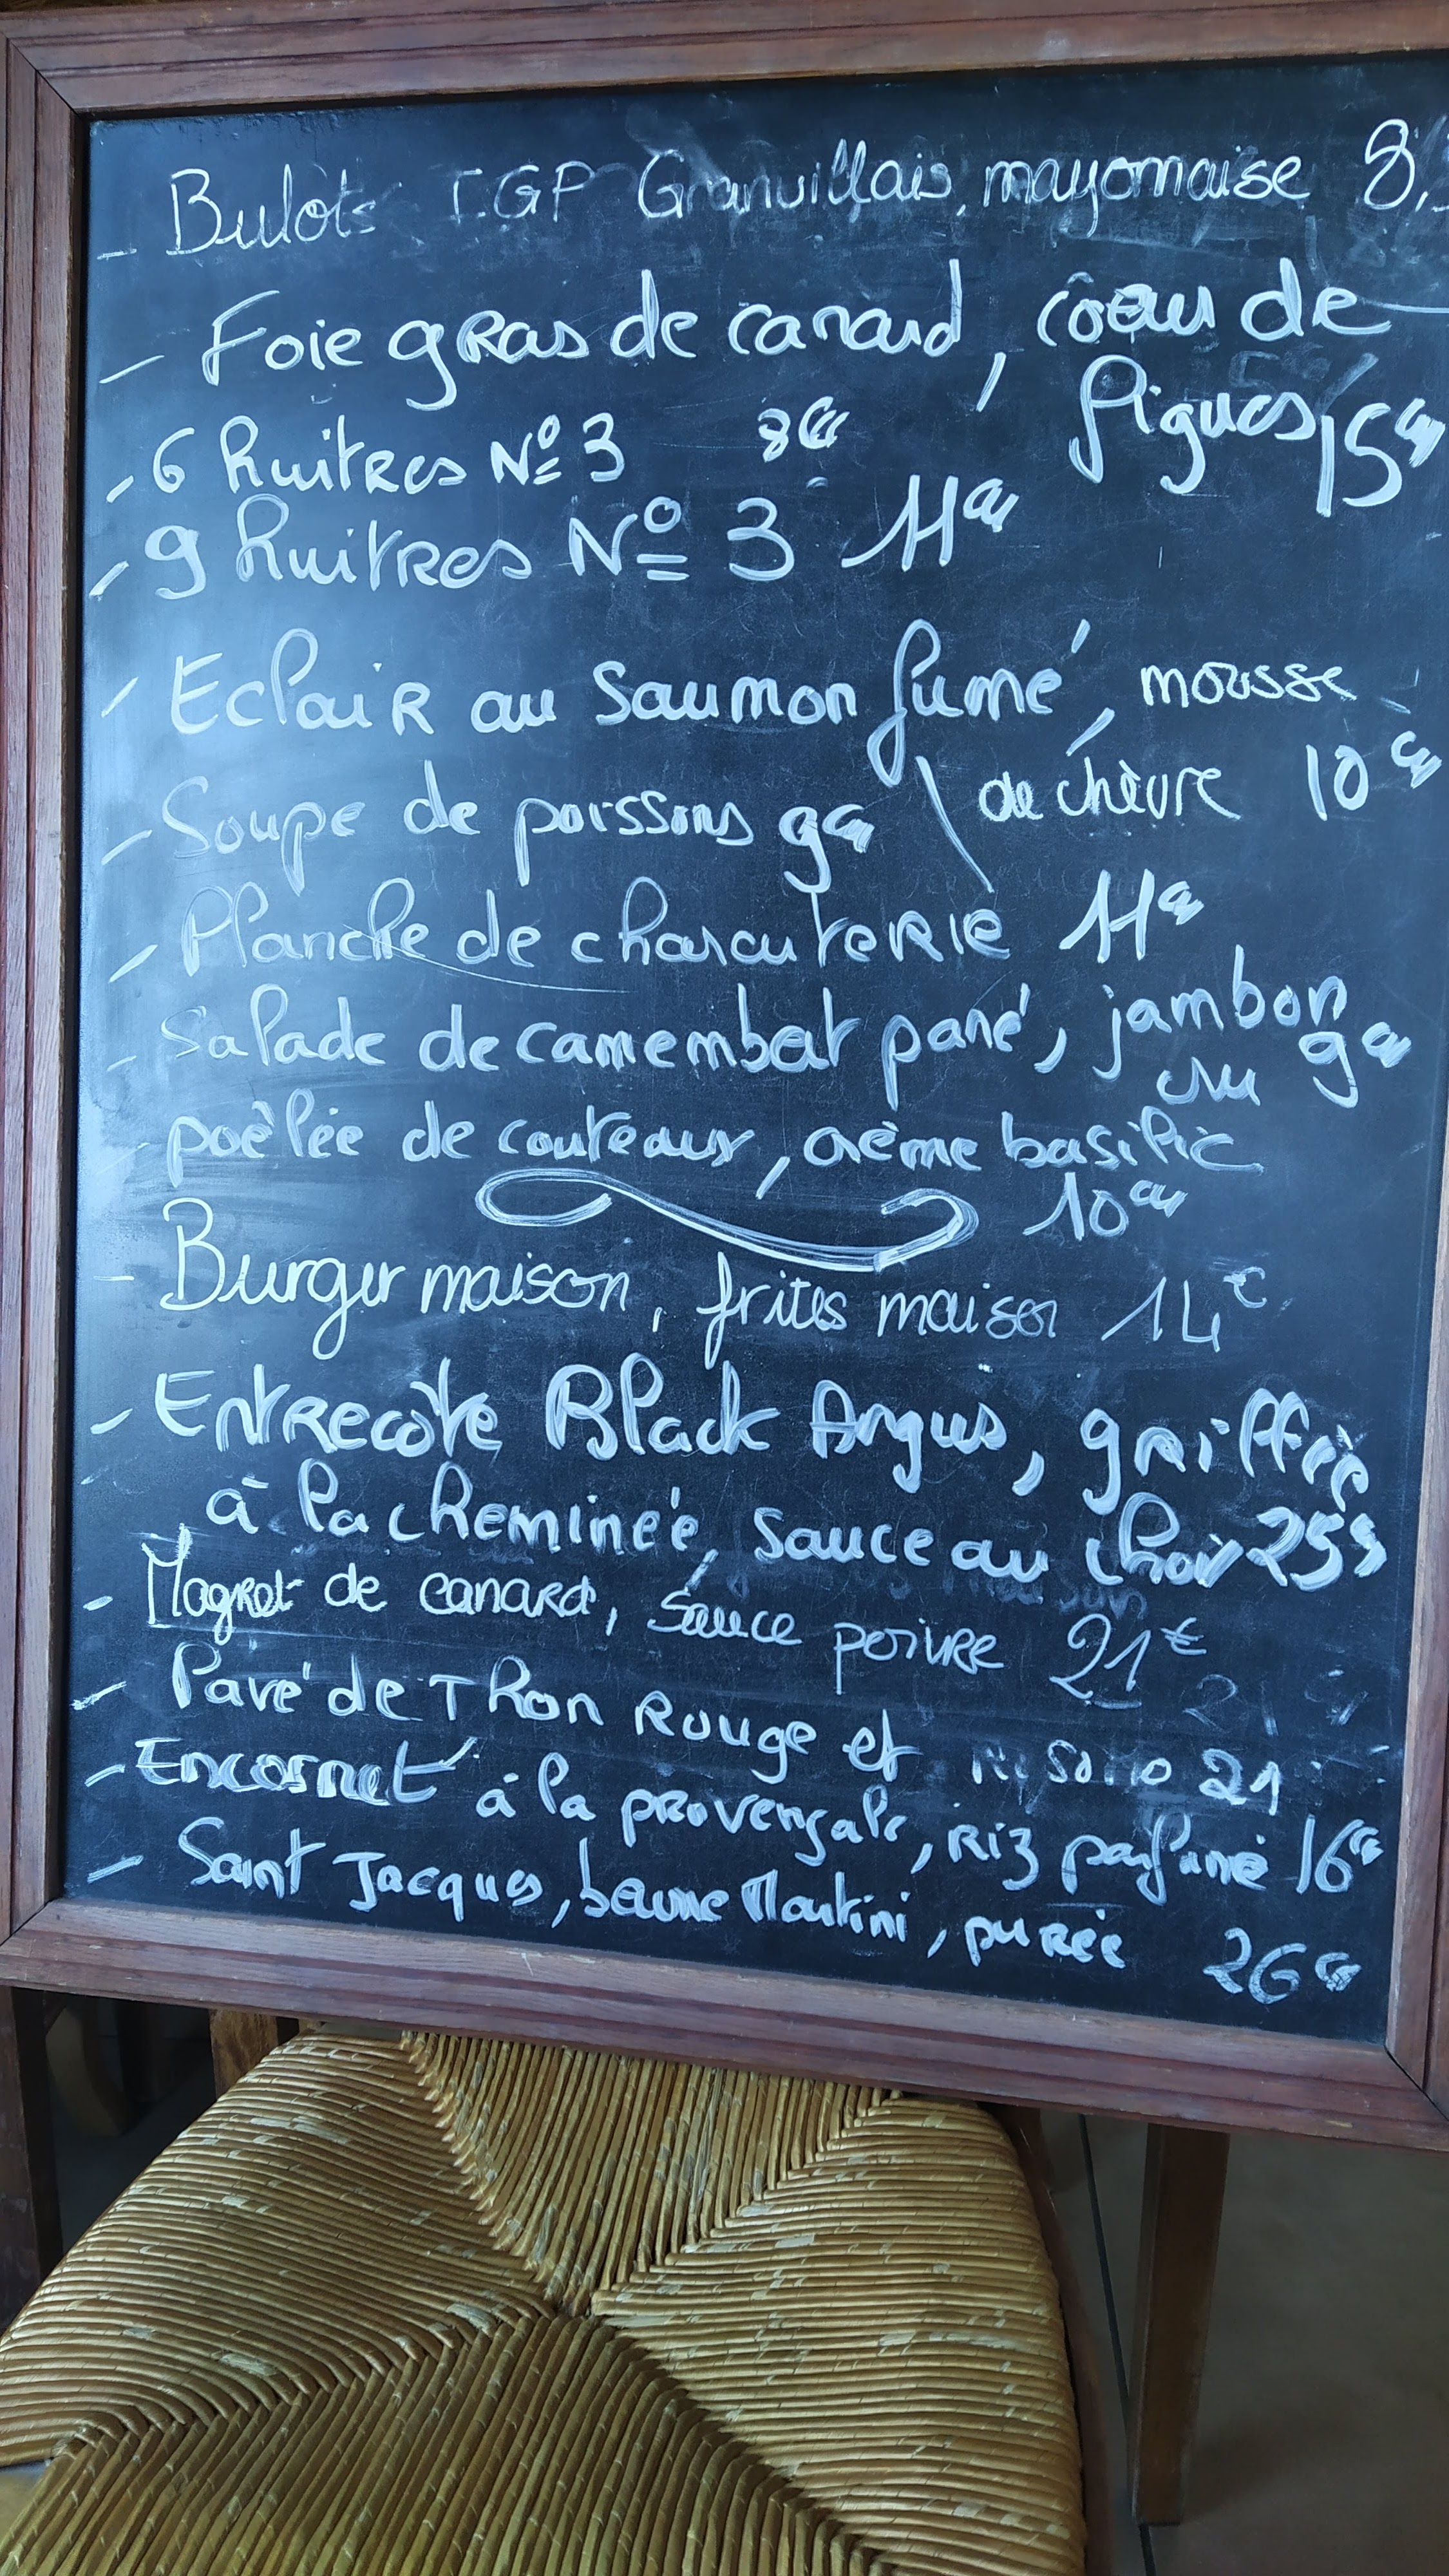 - Bulots IGP Granvillais, mayonnaise 8,
- Foie gras de canard, coeur de
figues 15€
- 6 huitres N° 3 8€
- 9 huitres N° 3 11€
- Eclair au saumon fumé, mousse
de chèvre 10€
- Soupe de poissons 9€
- Planche de charcuterie 11€
- Salade de camembert pané, jambon
cru 9€
- poêlée de couteaux, crème basilic
10€
- Burger maison, frites maison 14€
- Entrecôte Black Angus, griffée
à la cheminée, sauce au choix 25
- Magret de canard, sauce poivre 21€
- Pavé de Thon Rouge et risotto 21
- Encornet à la provençale, riz parfumé 16€
- Saint Jacques, beurre Martini, purée 26€